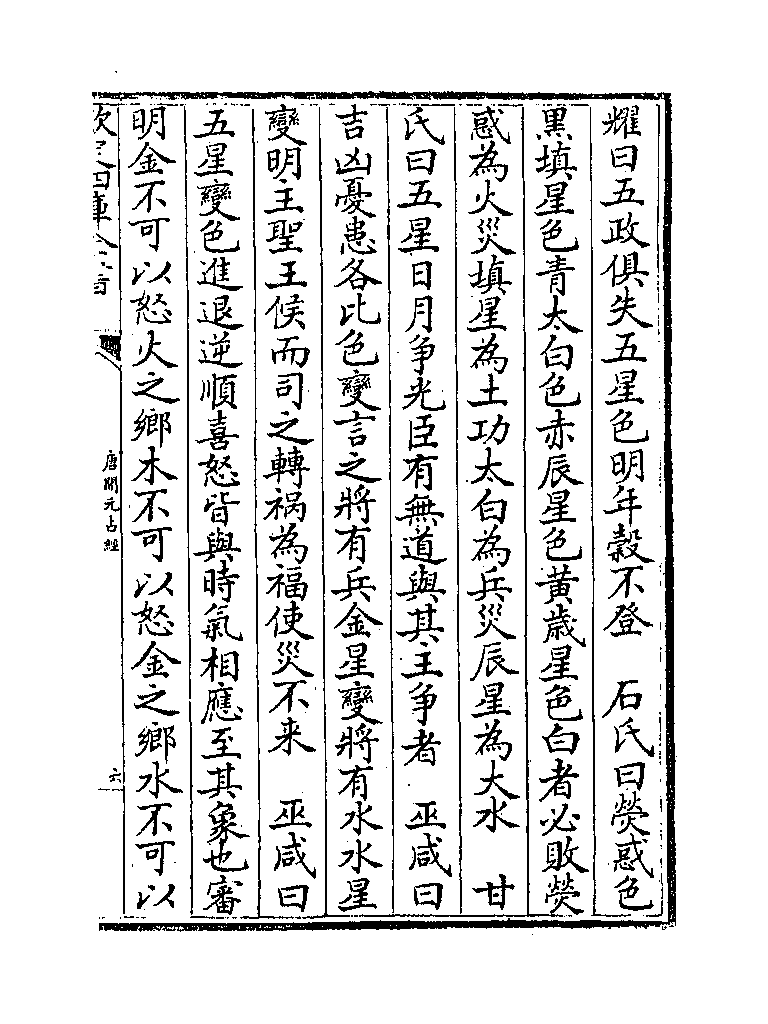 耀曰五政俱失五星色明年穀不登　石氏曰熒惑色
黑填星色青太白色赤辰星色黄歳星色白者必敗熒
惑為火災填星為土功太白為兵災辰星為大水　甘
氏曰五星日月争光臣有無道與其主争者　巫咸曰
吉凶憂患各比色變言之將有兵金星變將有水水星
變明主聖王侯而司之轉禍為福使災不来　巫咸曰
五星變色進退逆順喜怒皆與時氣相應至其象也審
明金不可以怒火之鄉木不可以怒金之鄉水不可以
欽定四庫全書
唐開元占經
六